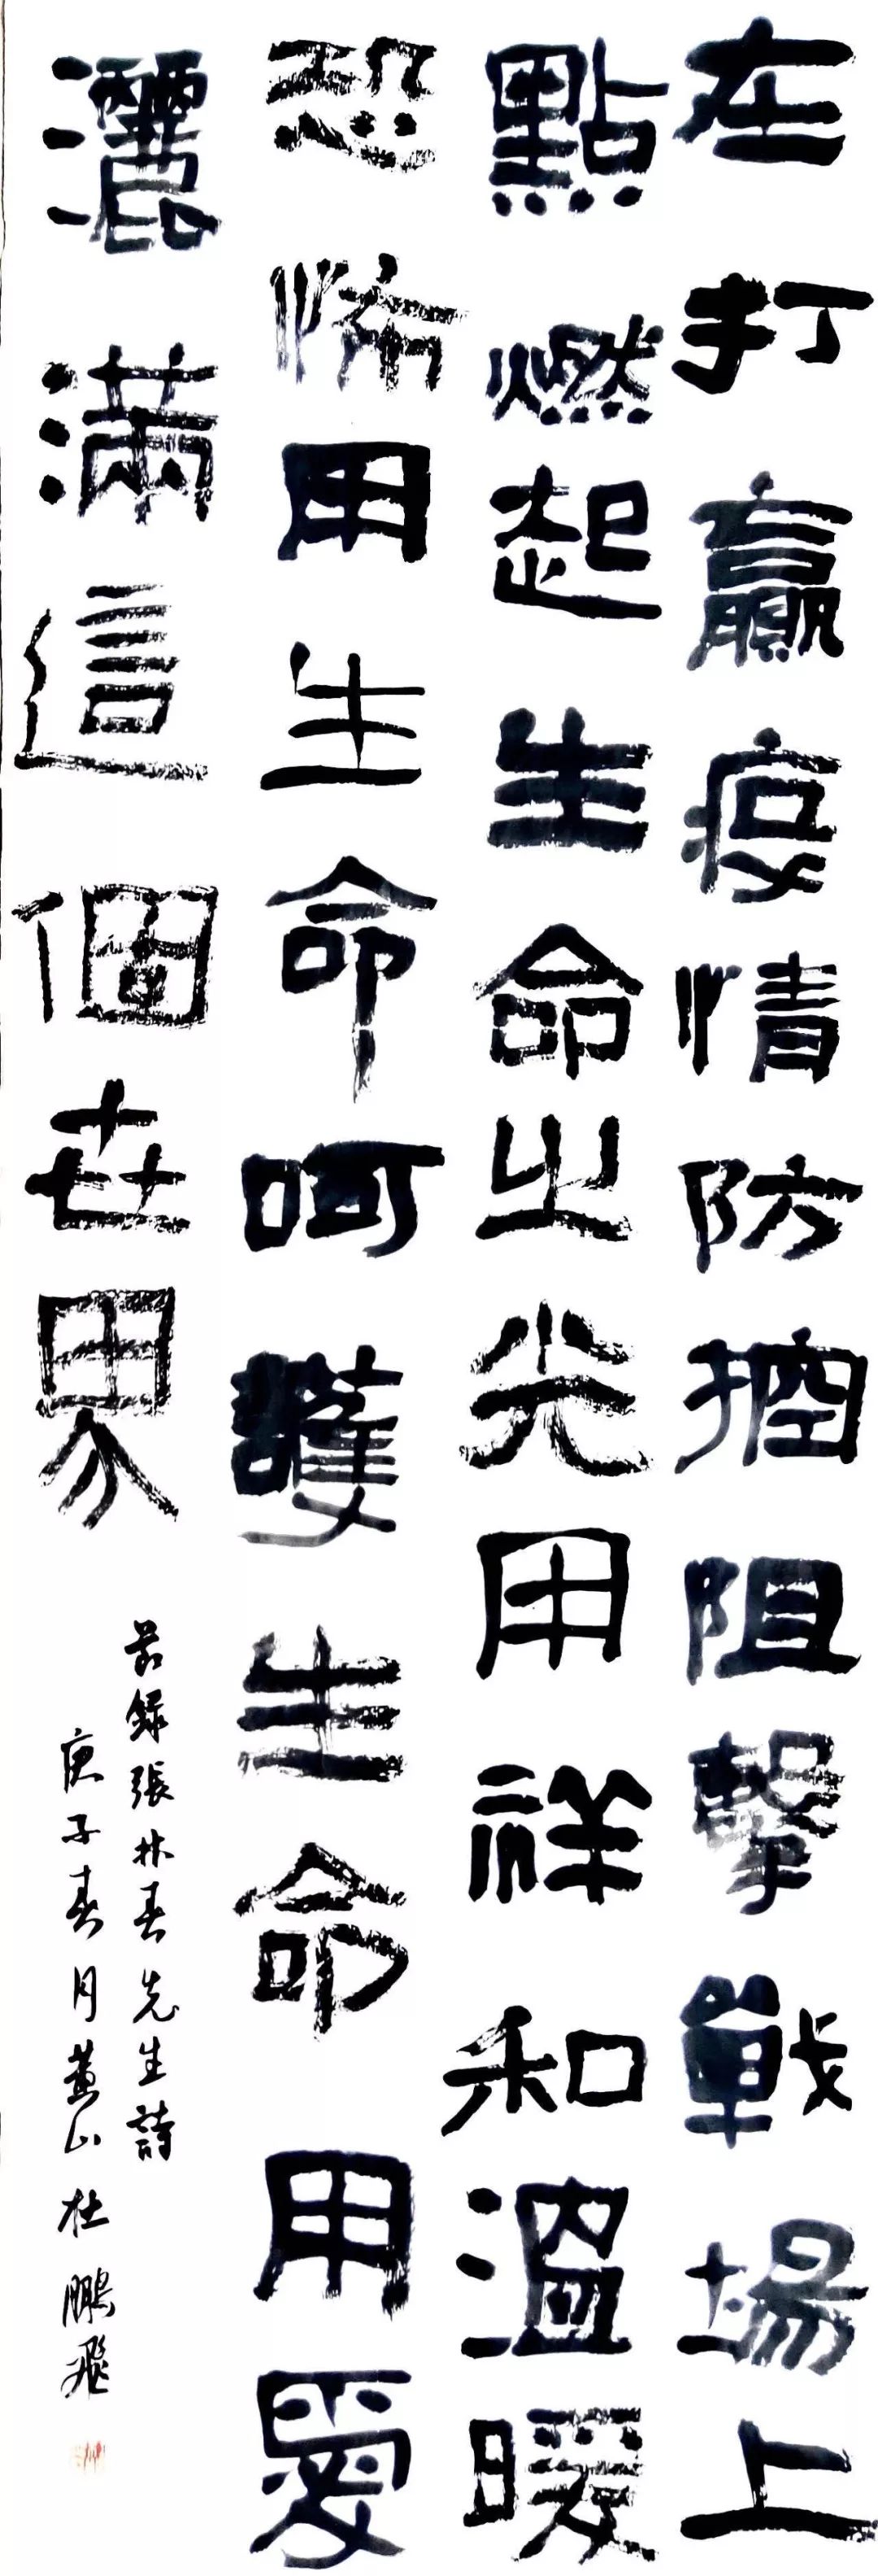 在打贏疫情防控阻擊戰場上
點燃起生命之光用祥和溫暖
恐怖用生命呵護生命用愛
灑滿這個世界
節錄張林春先生詩
庚子春月黄山杜鵬飛